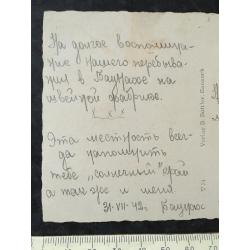 На долгое воспомина-
ние нашего пребыва-
ния в Баурасе на
швейной фабрике.
Эта местность всег-
да напомнит
тебе „солнечный" край
а так же и меня
31-VIII-42г. Баурас
Verlag D. Baurack